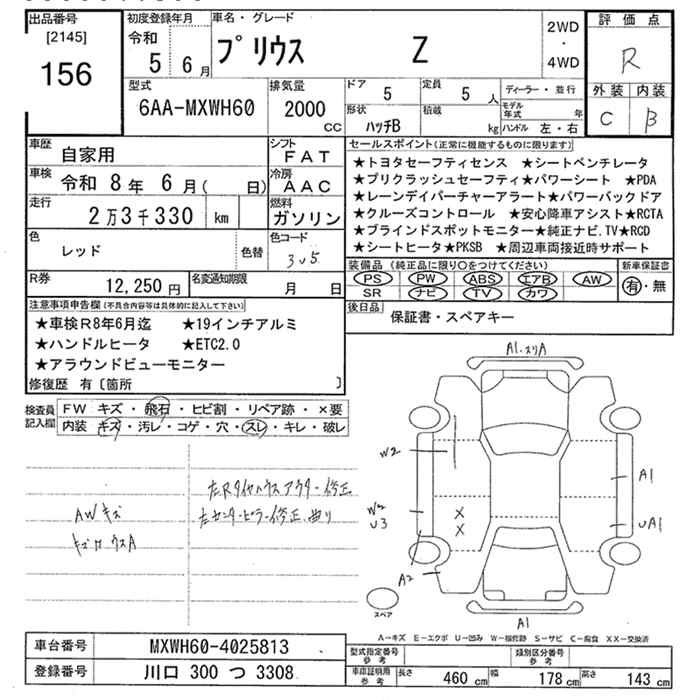 出品番号
[2145]
156
初度登録年月
令和
5 6月
車名・グレード
プリウス Z
2WD
・
4WD
評価点
R
外装 内装
C B
型式
6AA-MXWH60
排気量
2000
CC
ドア
5
定員
5 人
形状
ハッチB
積載
kg
ディーラー・並行
モデル年式 年
ハンドル 左・右
車歴
自家用
シフト
FAT
車検
令和 8年 6月( 日)
冷房
AAC
走行
2万3千330 km
燃料
ガソリン
色
レッド
色替
色コード
3U5
R券
12,250円
名変通知期限
月 日
セールスポイント(正常に機能するものに限ります)
★トヨタセーフティセンス ★シートベンチレータ
★プリクラッシュセーフティ★パワーシート ★PDA
★レーンデイパーチャーアラート★パワーバックドア
★クルーズコントロール ★安心降車アシスト★RCTA
★ブラインドスポットモニター★純正ナビ.TV★RCD
★シートヒータ★PKSB ★周辺車両接近時サポート
装備品(純正品に限り○をつけてください)
PS PW ABS エアB AW
SR ナビ TV カワ
新車保証書
有・無
後日品
保証書・スペアキー
注意事項申告欄(不具合内容等は具体的に記入して下さい)
★車検R8年6月迄 ★19インチアルミ
★ハンドルヒータ ★ETC2.0
★アラウンドビューモニター
修復歴 有〔箇所 〕
検査員記入欄
FW キズ・飛石・ヒビ割・リペア跡・×要
内装 キズ・汚レ・コゲ・穴・スレ・キレ・破レ
左Rタイヤハウスアウター修正
左センターピラー修正、曲り
AWキズ
A1.スリA
W2
A1
W2
U3
UA1
A2
A1
スペア
A-キズ E-エクボ U-凹み W-補修跡 S-サビ C-腐食 XX-交換済
車台番号
MXWH60-4025813
登録番号
川口 300 つ 3308
型式指定番号
参考
類別区分番号
参考
車庫証明用
参考
長さ 460 cm 幅 178 cm 高さ 143 cm